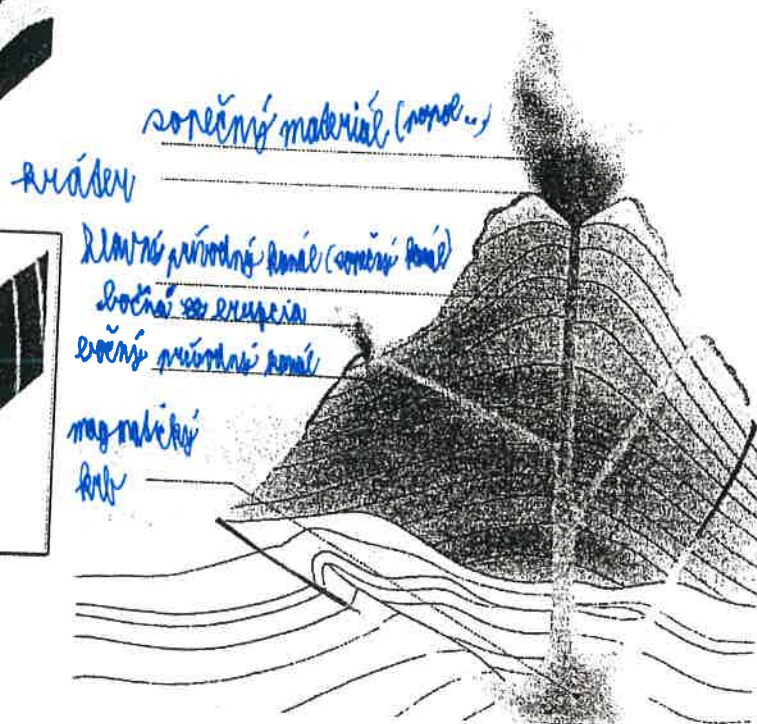 sopečný materiál (popol..)
kráter
hlavný prívodný kanál (sopečný kanál)
bočná erupcia
bočný prívodný kanál
magmatický
krb